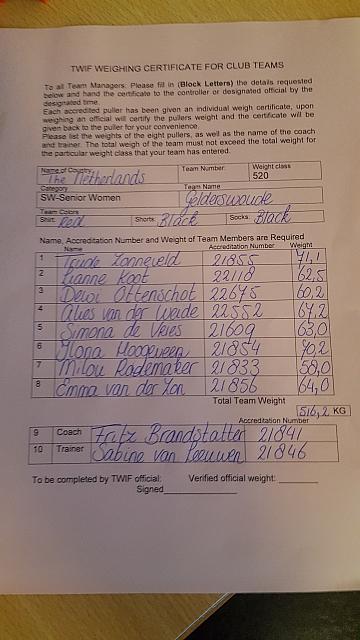 TWIF WEIGHING CERTIFICATE FOR CLUB TEAMS
To all Team Managers: Please fill in (Block Letters) the details requested
below and hand the certificate to the controller or designated official by the
designated time.
Each accredited puller has been given an individual weigh certificate, upon
weighing an official will certify the pullers weight and the certificate will be
given back to the puller for your convenience.
Please list the weights of the eight pullers, as well as the name of the coach
and trainer. The total weigh of the team must not exceed the total weight for
the particular weight class that your team has entered.
Name of Country Team Number: Weight class
The Netherlands 520
Category Team Name
SW-Senior Women Gelderswoude
Team Colors
Shirt: Red Shorts: Black Socks: Black
Name, Accreditation Number and Weight of Team Members are Required
Name Accreditation Number Weight
1 Trude Zonneveld 21855 71,1
2 Lianne Koot 22118 62,5
3 Dewi Ottenschot 22675 60,2
4 van der Weide 22552 67,2
5 Simona de Vries 21609 63,0
6 Ilona Hoogeveen 21854 70,2
7 Milou Rademaker 21833 58,0
8 Emma van der Zon 21856 64,0
Total Team Weight
516,2 KG
Accreditation Number
9 Coach Fritz Brandstatter 21841
10 Trainer Sabine van Leeuwen 21846
To be completed by TWIF official: Verified official weight:
Signed